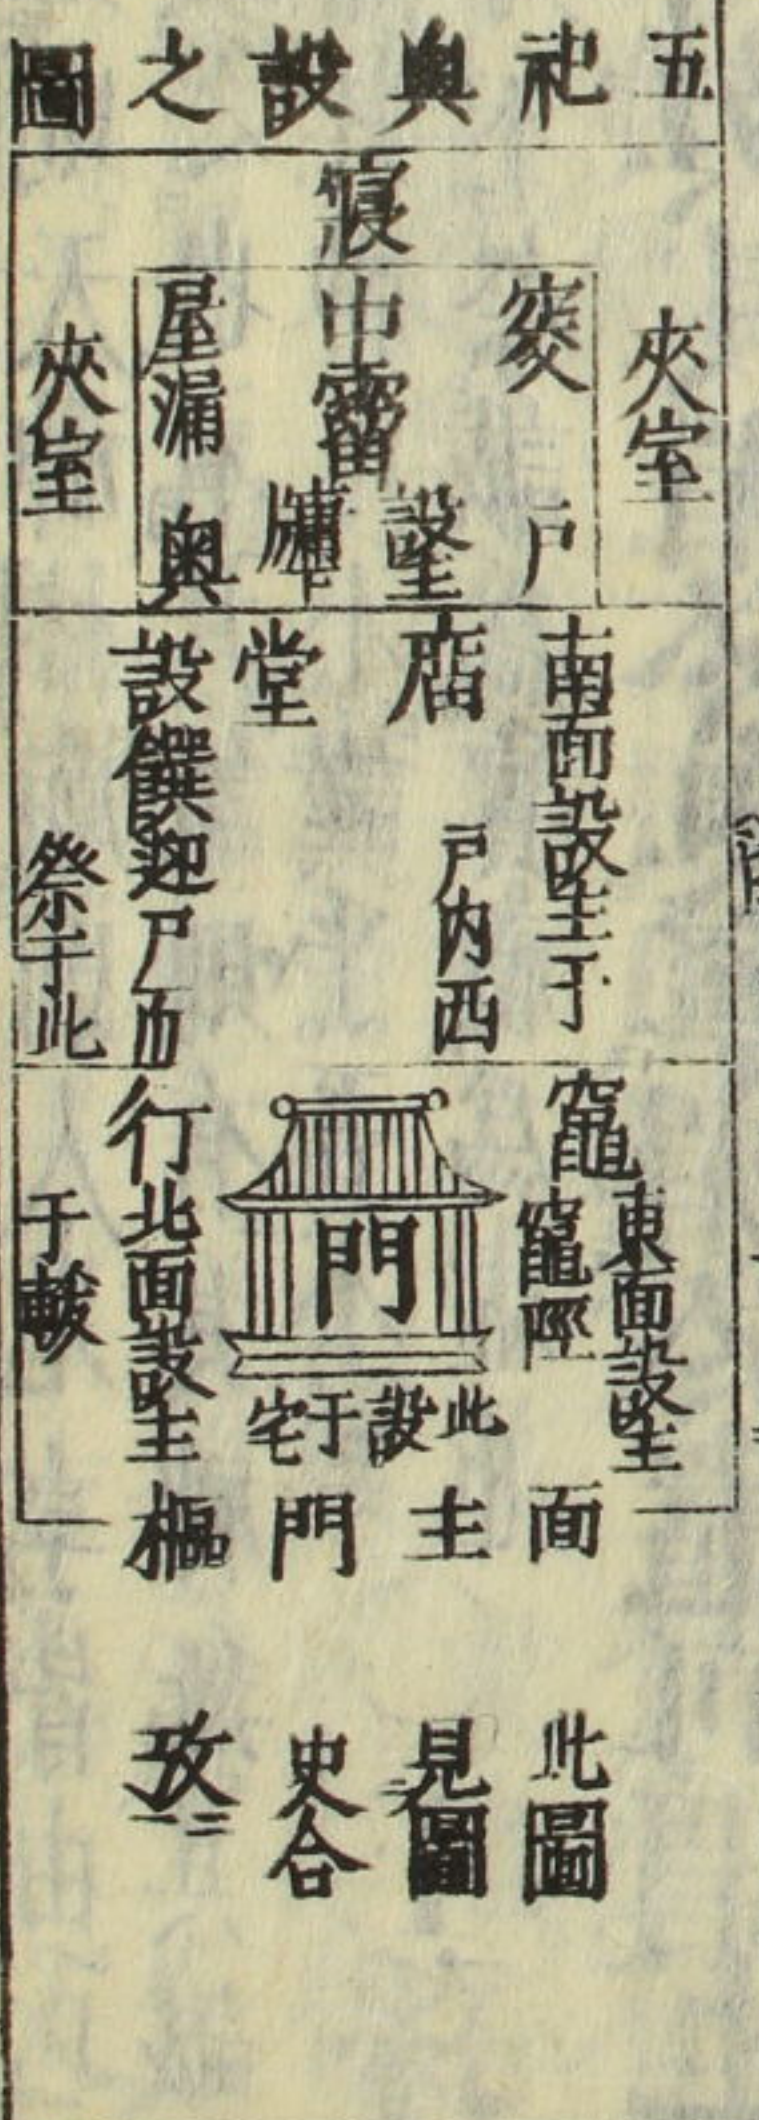 五祀奧設之圖
寢
夾室
窔
戶
中霤
設主
牖
屋漏
奧
夾室
南面設主于
戶內西
堂
設饌迎尸而
祭于此
竈
東面設主
竈陘
門
此設于宅
行
北面設主
于軷
面主門樞
此圖
見圖
史合
攷